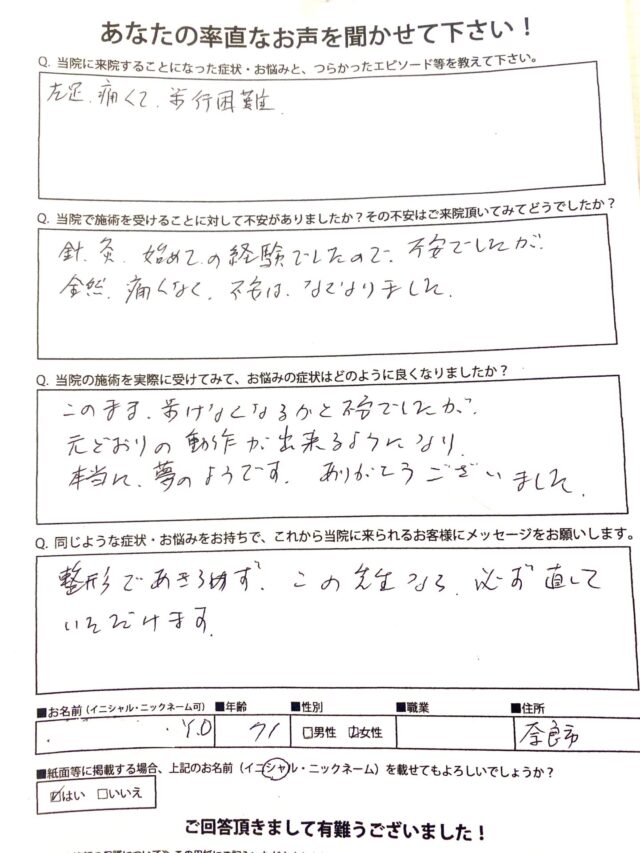 あなたの率直なお声を聞かせて下さい！
Q. 当院に来院することになった症状・お悩みと、つらかったエピソード等を教えて下さい。
左足、痛くて、歩行困難
Q. 当院で施術を受けることに対して不安がありましたか？その不安はご来院頂いてみてどうでしたか？
針、灸、始めての経験でしたので、不安でしたが、
全然、痛くなく、不安は、なくなりました。
Q. 当院の施術を実際に受けてみて、お悩みの症状はどのように良くなりましたか？
このまま、歩けなくなるかと不安でしたが、
元どおりの動作が出来るようになり、
本当に、夢のようです。ありがとうございました。
Q. 同じような症状・お悩みをお持ちで、これから当院に来られるお客様にメッセージをお願いします。
整形であきらめず、この先生なら、必ず直して
いただけます。
■お名前（イニシャル・ニックネーム可） ■年齢 ■性別 ■職業 ■住所
Y.O 71 □男性 ☑女性 奈良市
■紙面等に掲載する場合、上記のお名前（イニシャル・ニックネーム）を載せてもよろしいでしょうか？
☑はい □いいえ
ご回答頂きまして有難うございました！